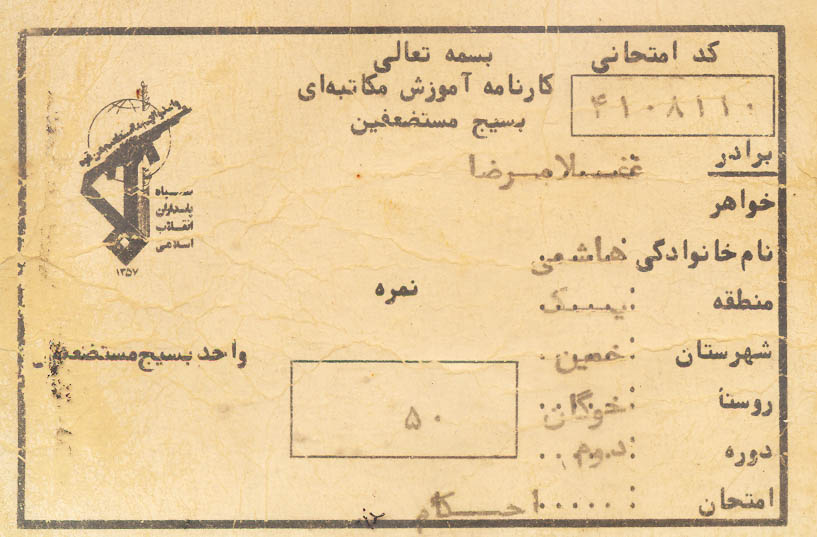 بسمه تعالی
کارنامه آموزش مکاتبه‌ای
بسیج مستضعفین
کد امتحانی
۴۱۰۸۱۱۰
برادر غلامرضا
خواهر
نام خانوادگی: هاشمی
منطقه: یک
شهرستان: خمین
روستا: خوگان
دوره: دوم
امتحان: احکام
نمره
۵۰
سپاه
پاسداران
انقلاب
اسلامی
۱۳۵۷
واحد بسیج مستضعفین